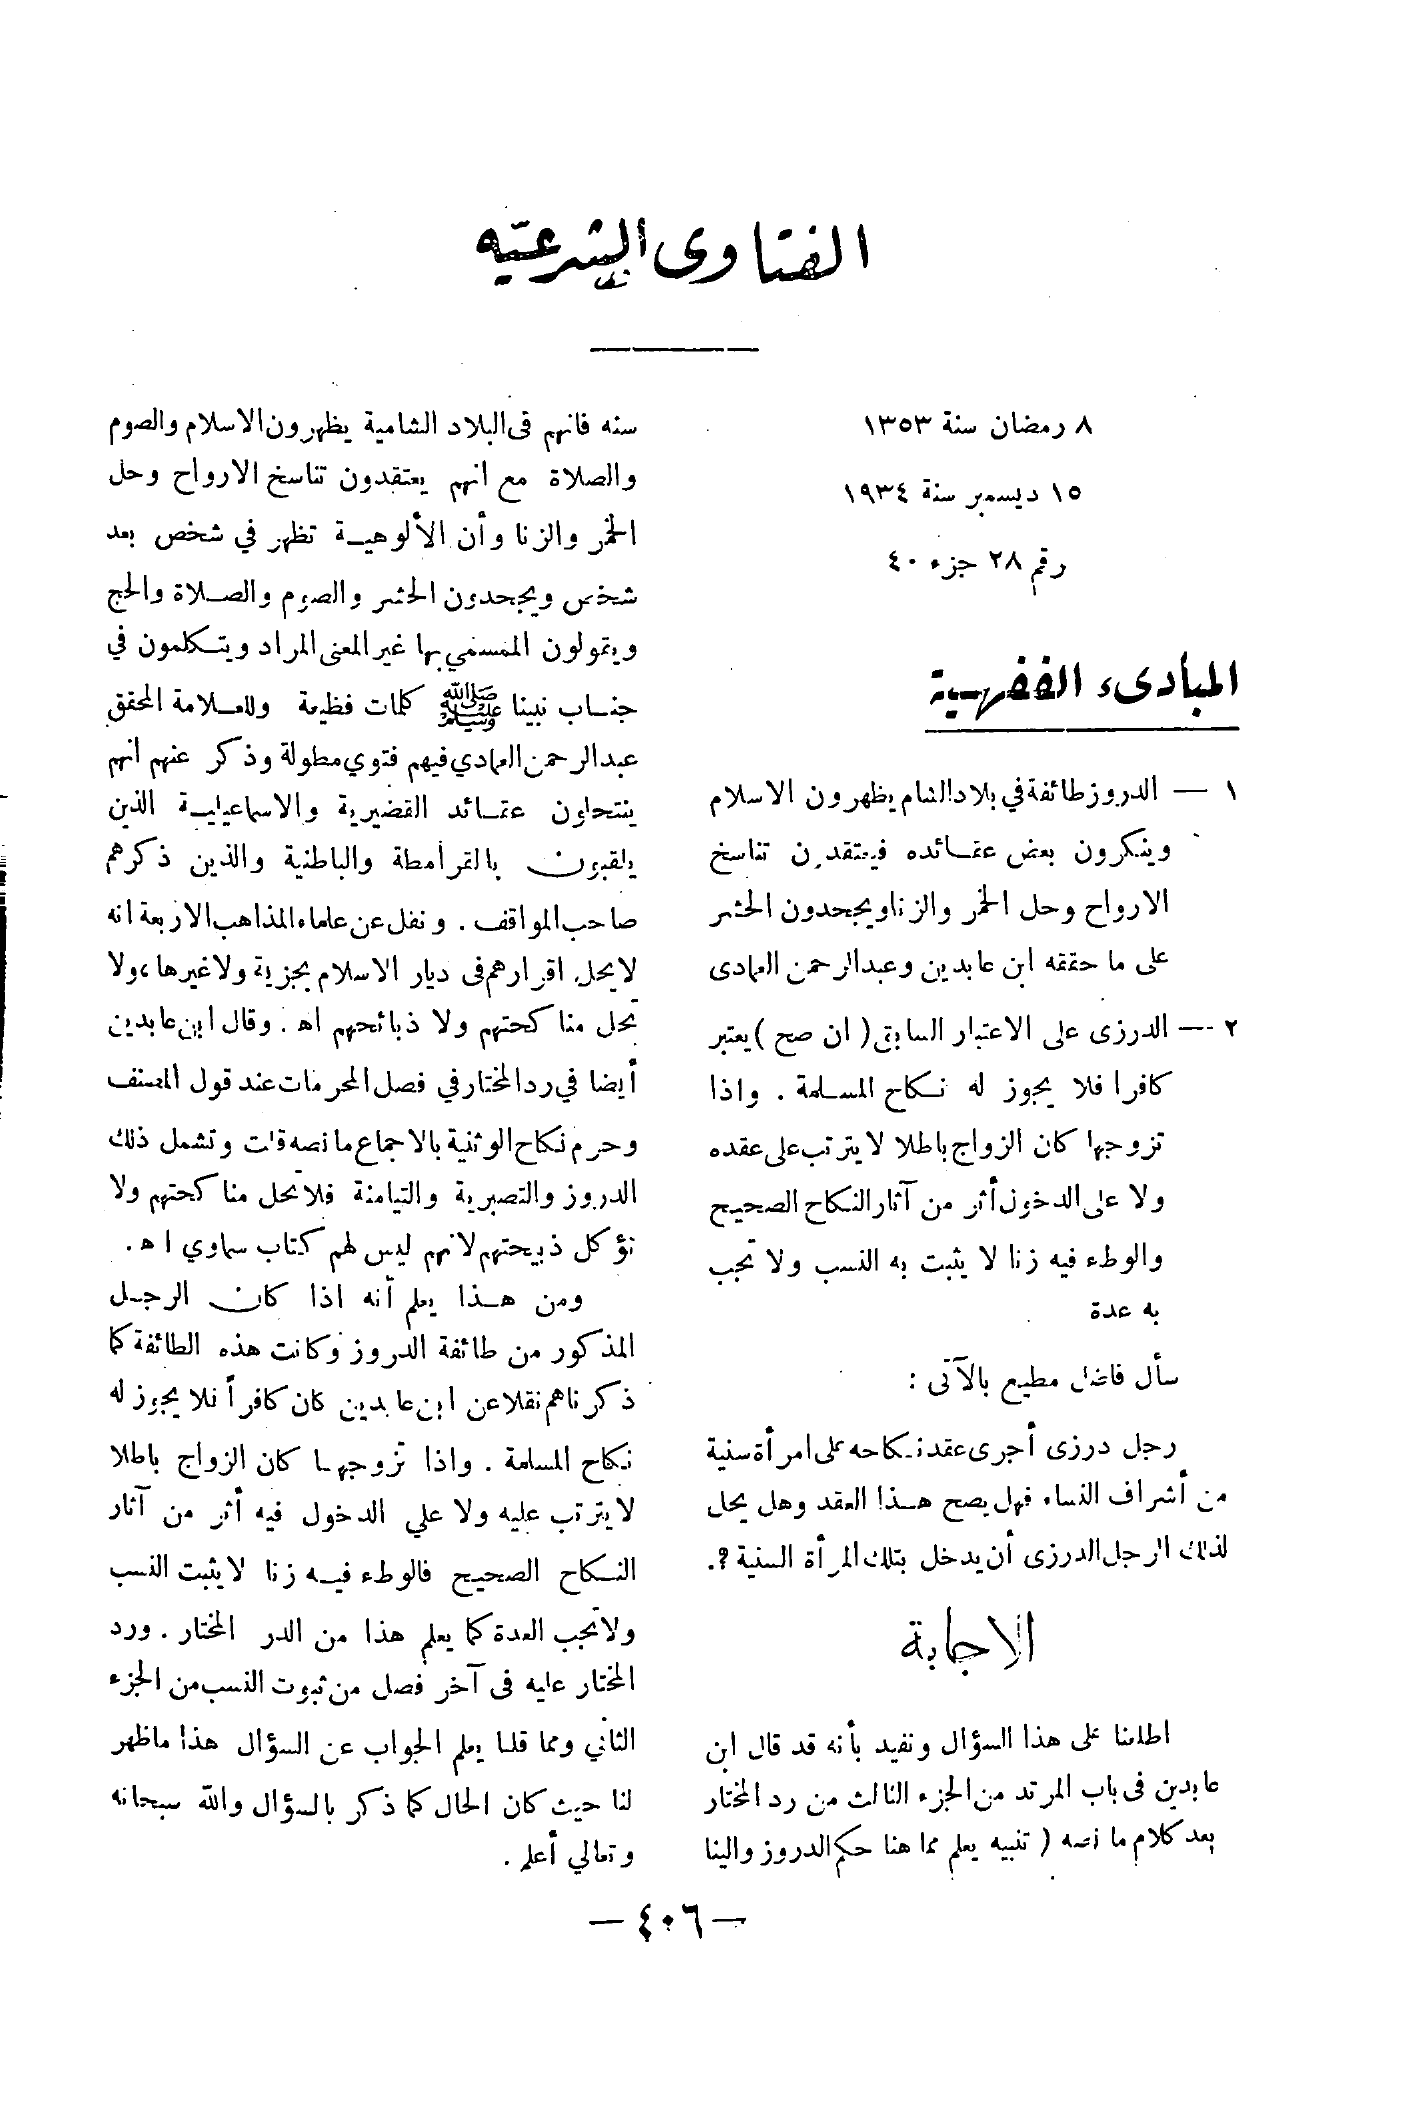 الفتاوى الشرعيّه
٨ رمضان سنة ١٣٥٣
١٥ ديسمبر سنة ١٩٣٤
رقم ٢٨ جزء ٤٠
المبادىء الفقهية
١ — الدروز طائفة في بلاد الشام يظهرون الاسلام
وينكرون بعض عقائده فيعتقدون تناسخ
الارواح وحل الخمر والزنا ويجحدون الحشر
على ما حققه ابن عابدين وعبد الرحمن العمادى
٢ — الدرزى على الاعتبار السابق ( ان صح ) يعتبر
كافرا فلا يجوز له نكاح المسلمة . واذا
تزوجها كان الزواج باطلا لا يترتب على عقده
ولا على الدخول أثر من آثار النكاح الصحيح
والوطء فيه زنا لا يثبت به النسب ولا تجب
به عدة
سأل فاضل مطيع بالآتى :
رجل درزى أجرى عقد نكاحه على امرأة سنية
من أشراف النساء فهل يصح هذا العقد وهل يحل
لذلك الرجل الدرزى أن يدخل بتلك المرأة السنية ؟.
الاجابة
اطلعنا على هذا السؤال ونفيد بأنه قد قال ابن
عابدين فى باب المرتد من الجزء الثالث من رد المختار
بعد كلام ما نصه ( تنبيه يعلم مما هنا حكم الدروز والينا
سنه فانهم فى البلاد الشامية يظهرون الاسلام والصوم
والصلاة مع انهم يعتقدون تناسخ الارواح وحل
الخمر والزنا وأن الألوهية تظهر في شخص بعد
شخص ويجحدون الحشر والصوم والصلاة والحج
ويقولون المسمي بها غير المعنى المراد ويتكلمون في
جناب نبينا صلى الله عليه وسلم كلمات فظيعة وللعلامة المحقق
عبد الرحمن العمادي فيهم فتوي مطولة وذكر عنهم انهم
ينتحلون عقائد القضيرية والاسماعيلية الذين
يلقبون بالقرامطة والباطنية والذين ذكرهم
صاحب المواقف . ونقل عن علماء المذاهب الاربعة انه
لا يحل اقرارهم فى ديار الاسلام بجزية ولا غيرها ، ولا
تحل مناكحتهم ولا ذبائحهم اه . وقال ابن عابدين
أيضا في رد المختار في فصل المحرمات عند قول المصنف
وحرم نكاح الوثنية بالاجماع ما نصه قلت وتشمل ذلك
الدروز والنصيرية والتيامنة فلا تحل مناكحتهم ولا
تؤكل ذبيحتهم لانهم ليس لهم كتاب سماوي اه .
ومن هذا يعلم أنه اذا كان الرجل
المذكور من طائفة الدروز وكانت هذه الطائفة كما
ذكرناهم نقلا عن ابن عابدين كان كافراً فلا يجوز له
نكاح المسلمة . واذا تزوجها كان الزواج باطلا
لا يترتب عليه ولا علي الدخول فيه أثر من آثار
النكاح الصحيح فالوطء فيه زنا لا يثبت النسب
ولا تجب العدة كما يعلم هذا من الدر المختار . ورد
المختار عليه فى آخر فصل من ثبوت النسب من الجزء
الثاني ومما قلنا يعلم الجواب عن السؤال هذا ما ظهر
لنا حيث كان الحال كما ذكر بالسؤال والله سبحانه
وتعالي أعلم .
— ٤٠٦ —